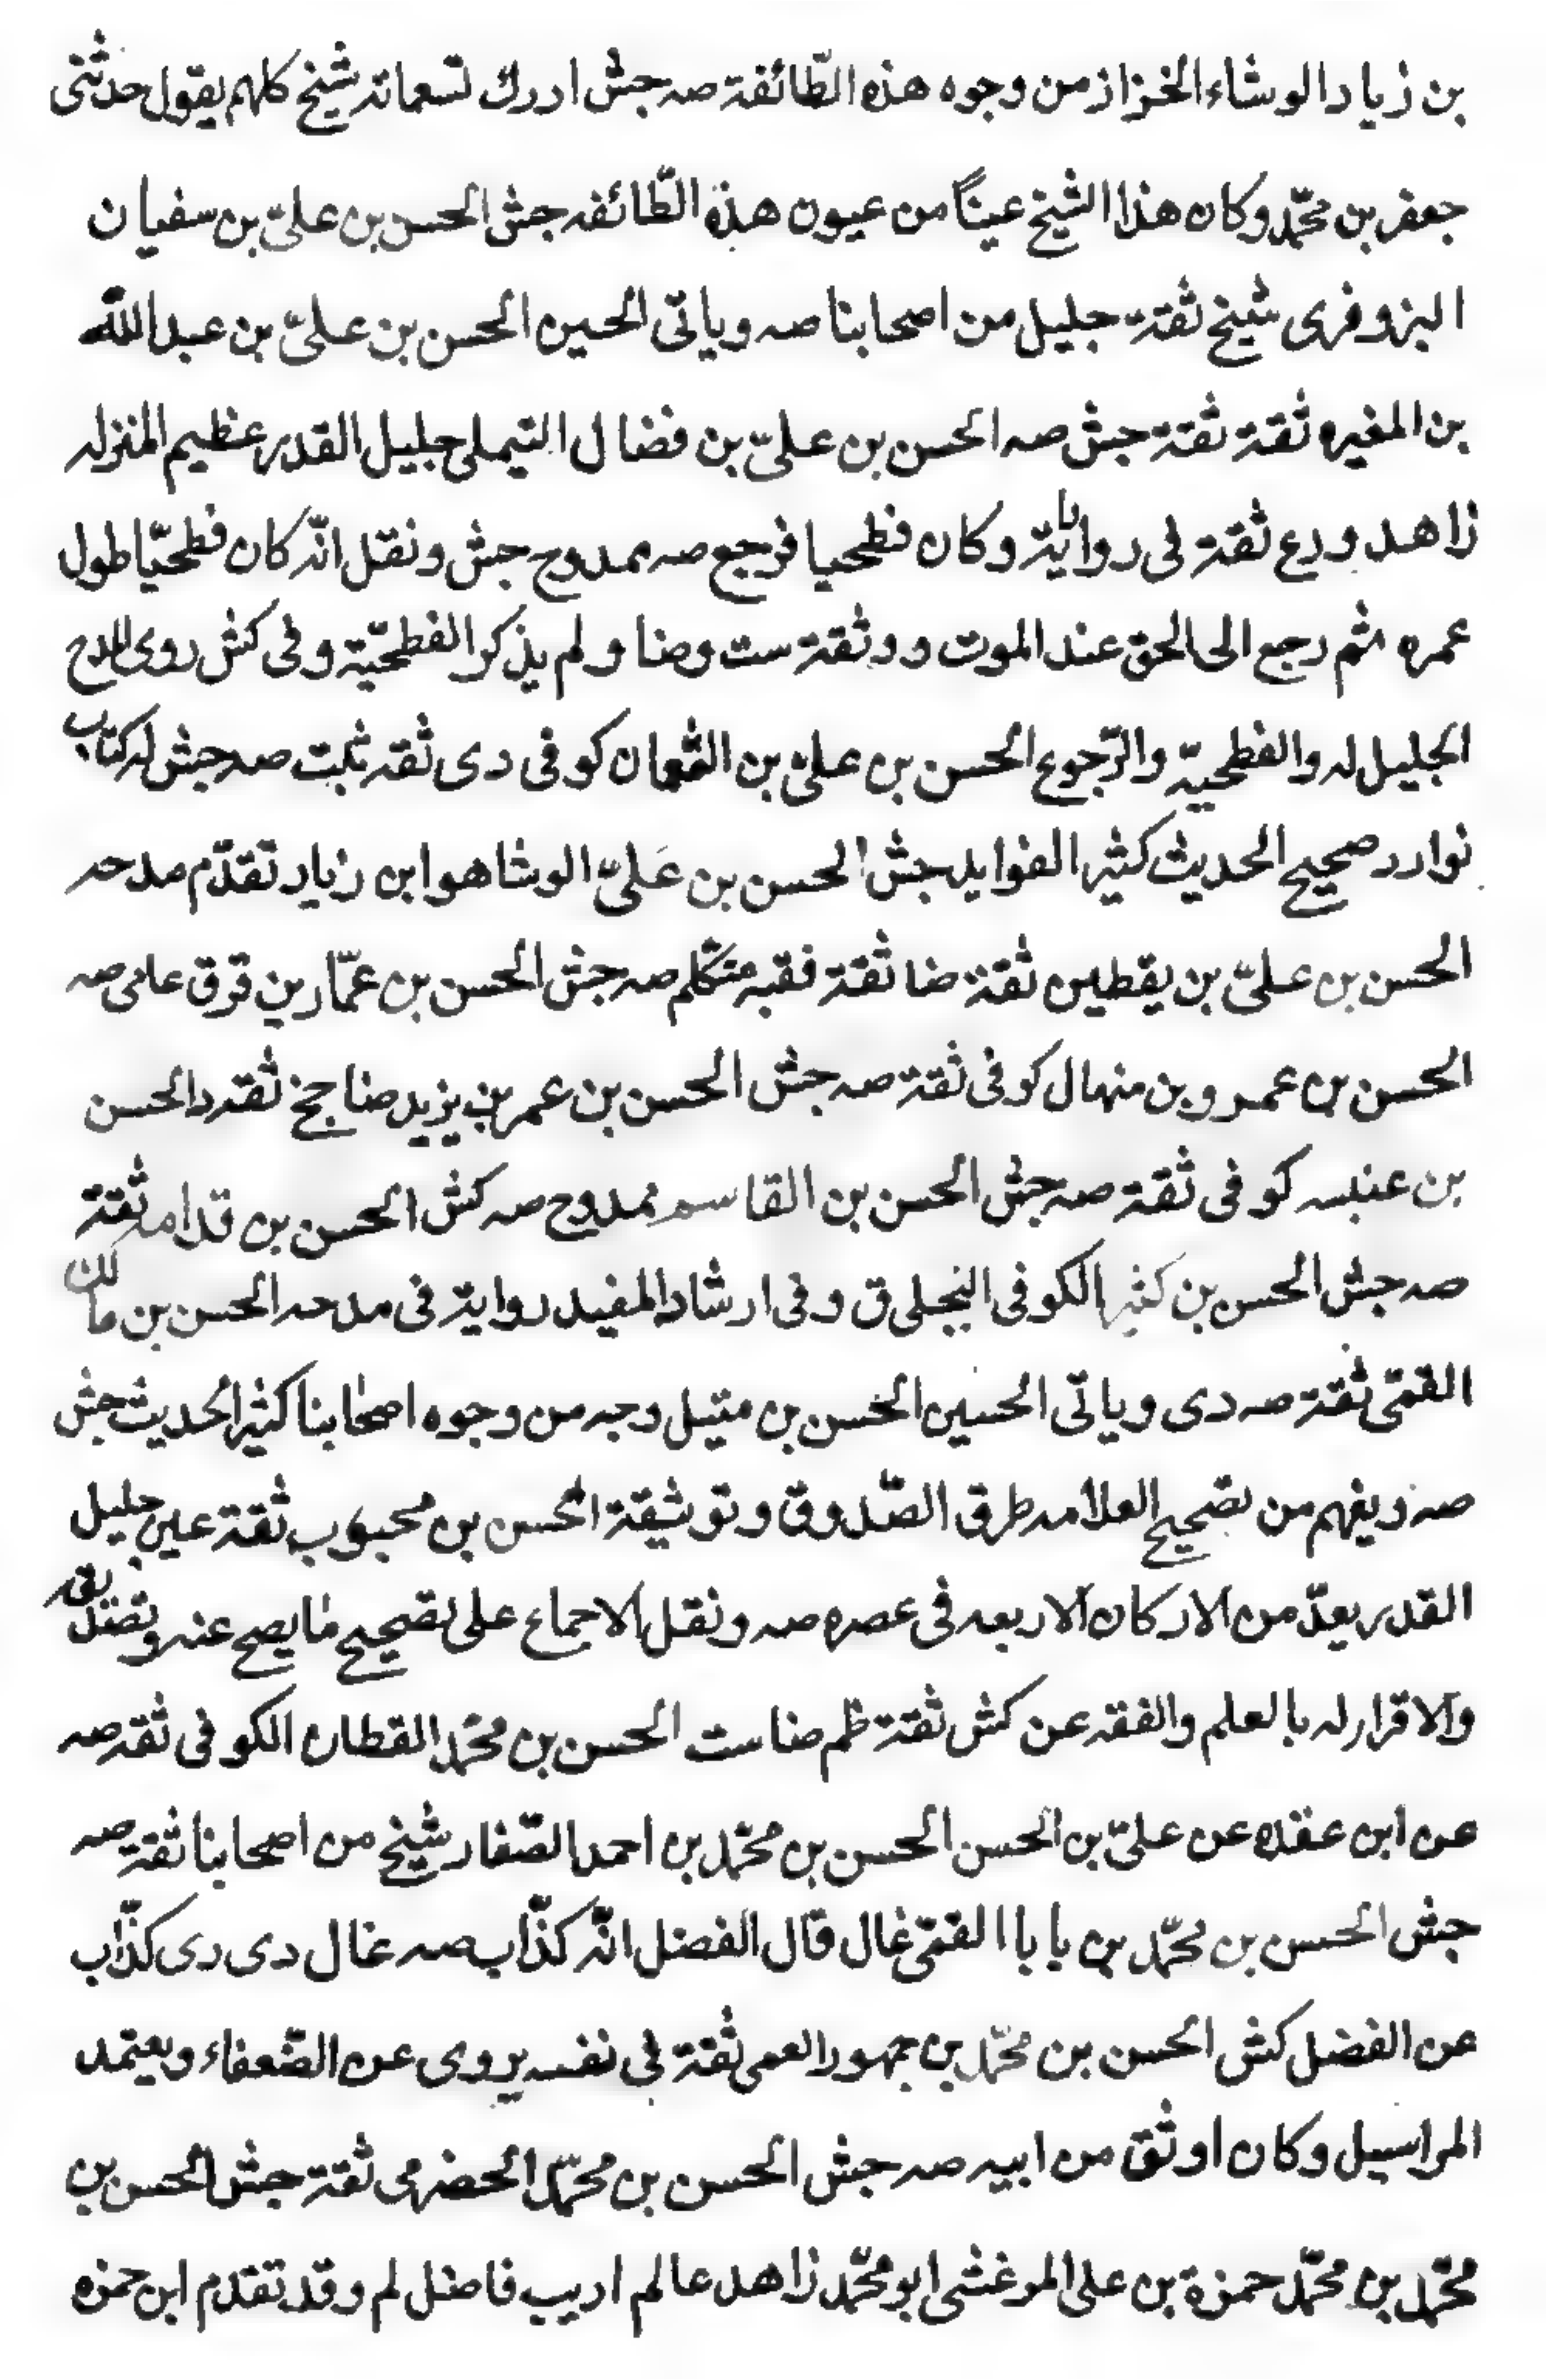 بن زياد الوشاء الخزاز من وجوه هذه الطّائفة صه جش ادرك تسعمائه شيخ كلهم يقول حدثنى
جعفر بن محمّد وكان هذا الشيخ عينًا من عيون هذه الطّائفه جش الحسن بن علىّ بن سفيان
البزوفرى شيخ ثقة جليل من اصحابنا صه وياتى الحسين الحسن بن علىّ بن عبد اللّه
بن المغيره ثقة ثقة جش صه الحسن بن علىّ بن فضال التيملى جليل القدر عظيم المنزله
زاهد ورع ثقة فى رواياته وكان فطحيا فرجع صه ممدوح جش ونقل انّه كان فطحيّا طول
عمره ثم رجع الى الحق عند الموت ووثقة ست وضا ولم يذكر الفطحيّة وفى كش روى المدح
الجليل له والفطحيّة والرّجوع الحسن بن علىّ بن النّعمان كوفى دى ثقه ثبت صه جش له كتاب
نوادر صحيح الحديث كثير الفوايد جش الحسن بن عَلىّ الوشا هو ابن زياد تقدّم مدحه
الحسن بن علىّ بن يقطين ثقة ضا ثقة فقيه متكلم صه جش الحسن بن عمّار ين قرق عامى صه
الحسن بن عمرو بن منهال كوفى ثقة صه جش الحسن بن عمر بن يزيد ضا جخ ثقه د الحسن
بن عنبسه كوفى ثقة صه جش الحسن بن القاسم ممدوح صه كش الحسن بن قدامه ثقة
صه جش الحسن بن كثير الكوفى البجلى ق وفى ارشاد المفيد رواية فى مدحه الحسن بن مالك
القمّى ثقة صه دى وياتى الحسين الحسن بن متيل وجه من وجوه اصحابنا كثير الحديث جش
صه ويفهم من تصحيح العلامه طرق الصّدوق وتوثيقة الحسن بن محبوب ثقة عين جليل
القدر يعدّ من الاركان الاربعه فى عصره صه ونقل الاجماع على تصحيح ما يصح عنه وتصديقه
والاقرار له بالعلم والفقه عن كش ثقة ظم ضا ست الحسن بن محمّد القطان الكوفى ثقه صه
عن ابن عقده عن علىّ بن الحسن الحسن بن محمّد بن احمد الصّفار شيخ من اصحابنا ثقة صه
جش الحسن بن محمّد بن بابا القمّى غال قال الفضل انّه كذّاب صه غال دى رى كذّاب
عن الفضل كش الحسن بن محمّد بن جمهور العمى ثقة فى نفسه يروى عن الضّعفاء ويعتمد
المراسيل وكان اوثق من ابيه صه جش الحسن بن محمّد الحضرمى ثقة جش الحسن بن
محمّد بن محمّد حمزة بن على المرغشى ابو محمّد زاهد عالم اديب فاضل لم وقد تقدم ابن حمزه